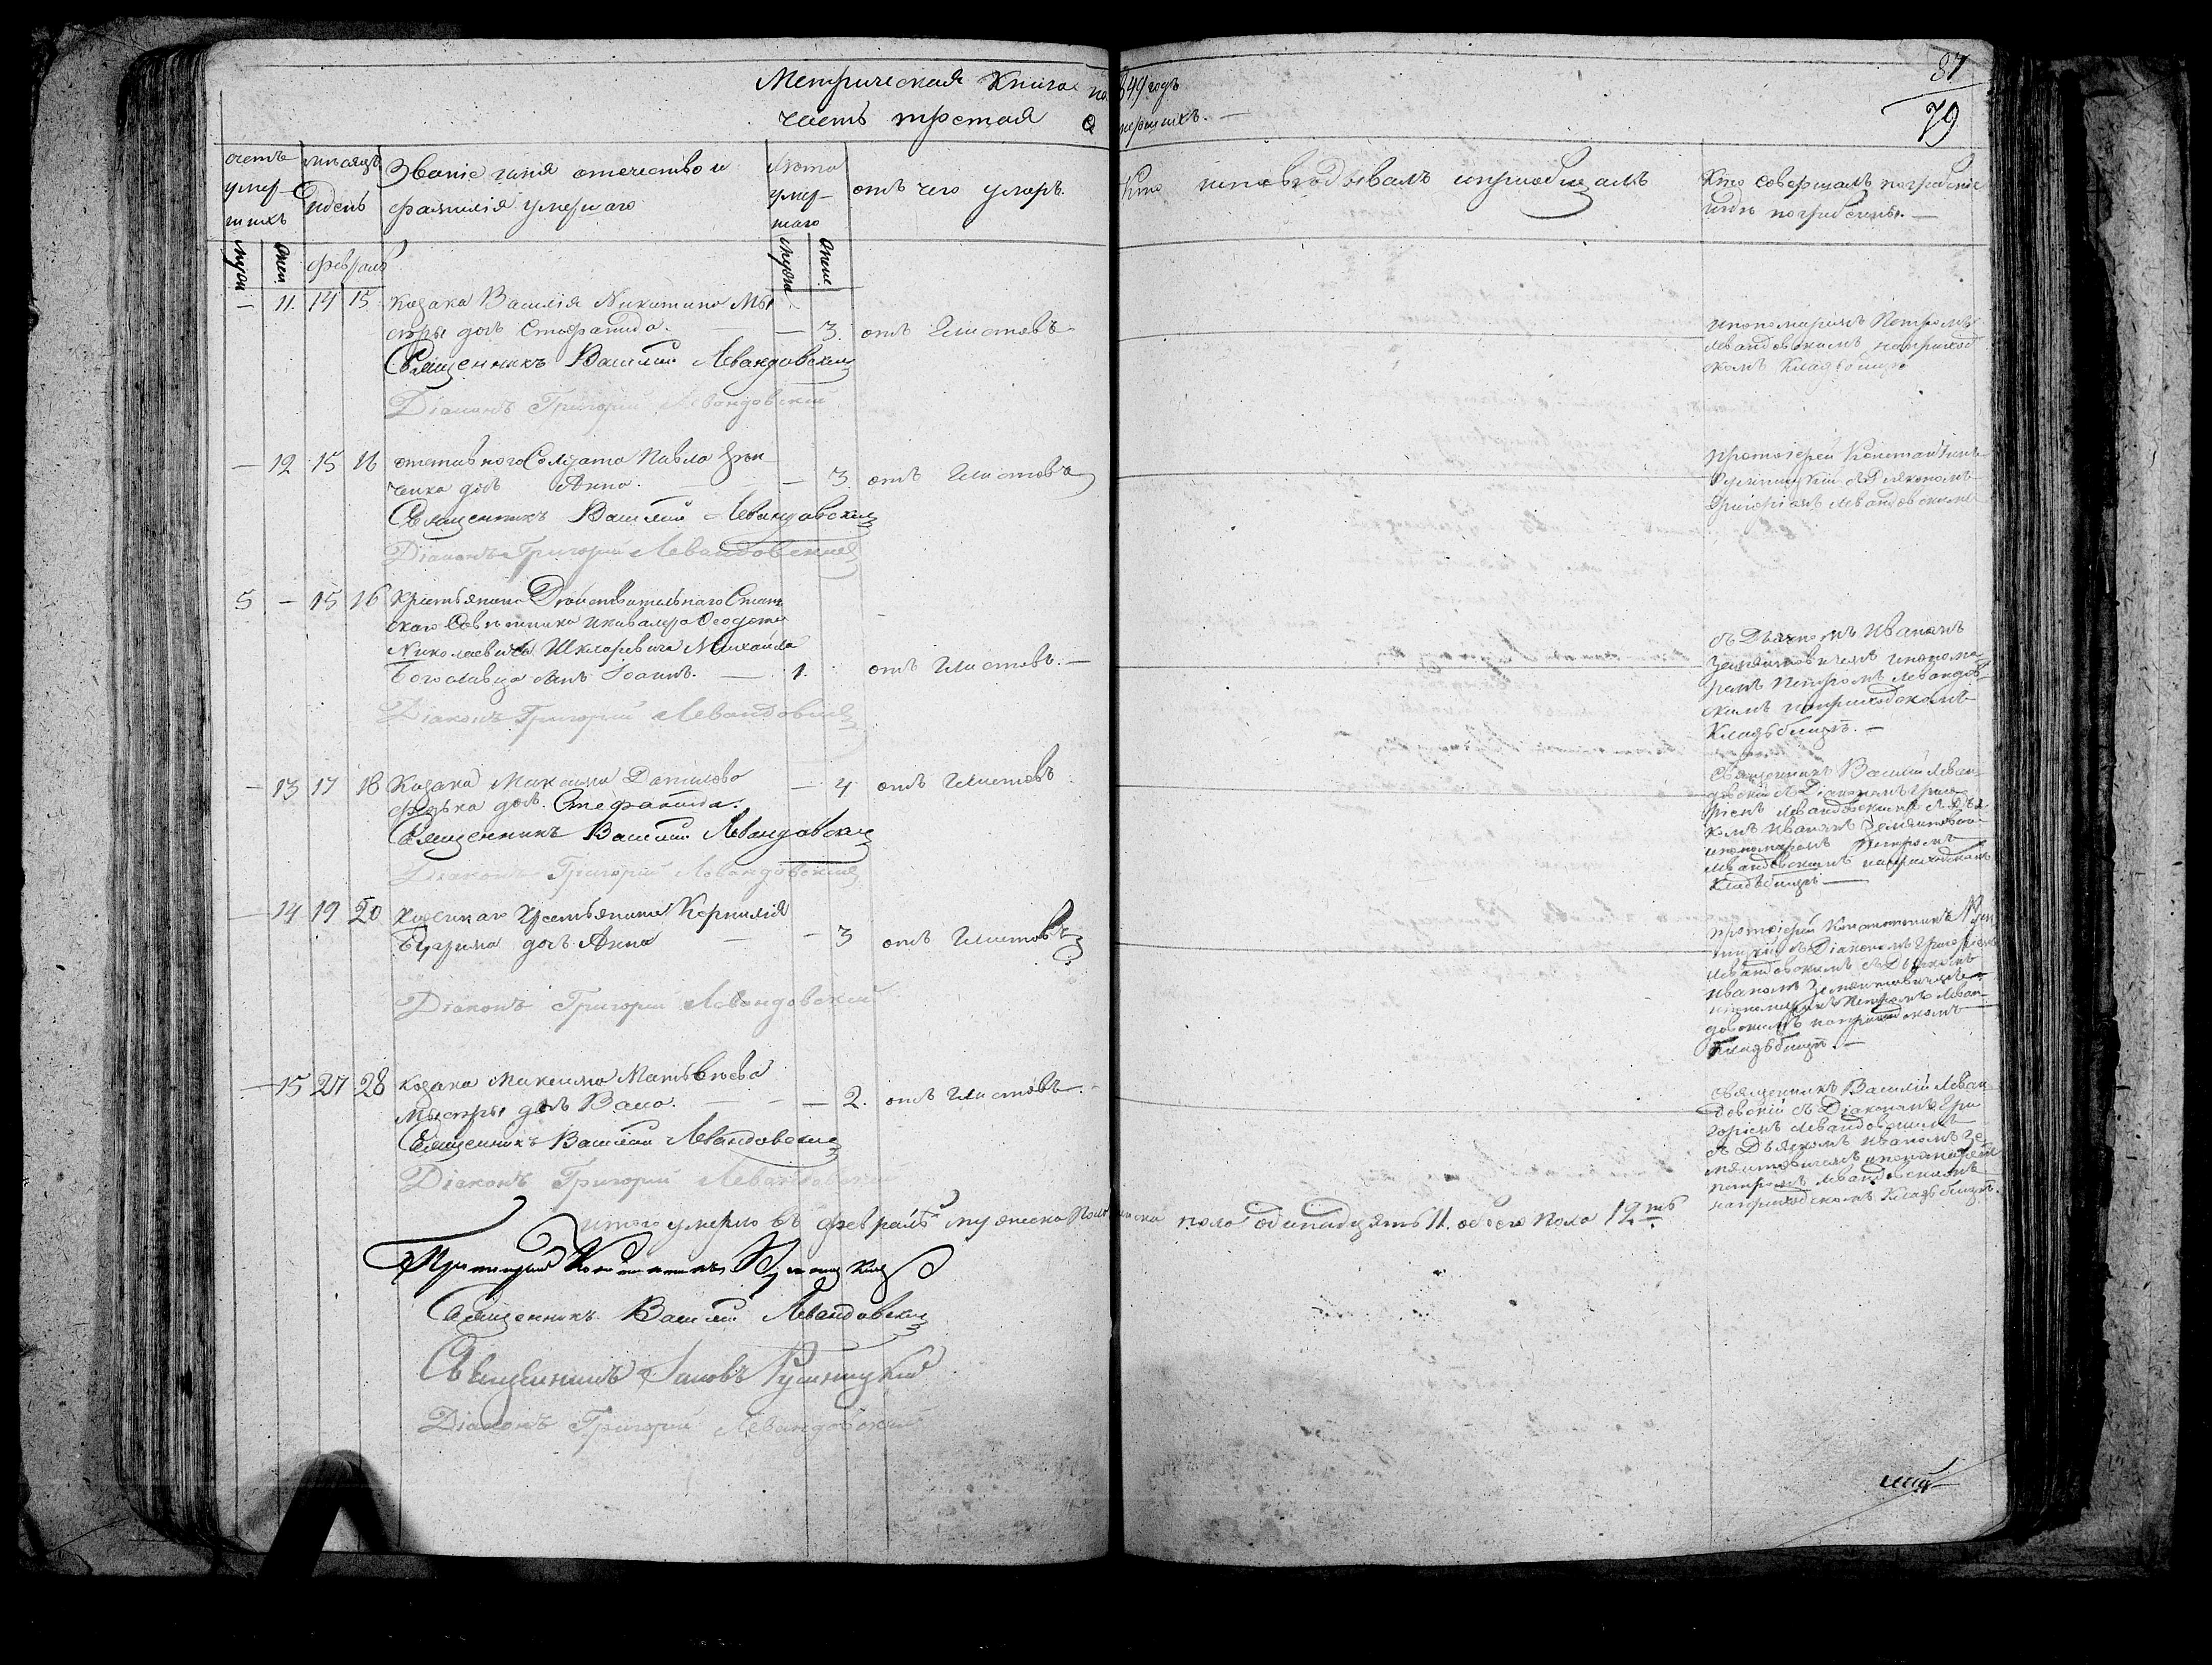 Метрическая Книга на 849 годъ
87
часть третая О умершихъ.
79
счетъ умер-шихъ
мѣсяцъ и день
Званіе имя отечество и
фамилія умершаго
Лѣта умер-шаго
отъ чего умеръ.
Кто исповѣдывалъ и пріобщалъ
Кто совершалъ погребеніе
и гдѣ погребены.
Муж
Жен
Февраль
Муж
Жен
— 11. 14 15 Козака Василія Никитина Мы
стры дочь Стефанида. — 3. отъ глистовъ
Священникъ Василій Левандовскій
Діаконъ Григорій Левандовскій
и пономаремъ Петромъ
Левандовскимъ на приход
скомъ кладбищѣ
— 12 15 16 отставного Солдата Павла
ченка дочь Анна. — 3. отъ глистовъ
Священникъ Василій Левандовскій
Діаконъ Григорій Левандовскій
протоіерей Константинъ
съ Діякономъ
Григоріемъ Левандовскимъ
5 — 15 16 крестьянина Дѣйствительнаго Стат
скаго Совѣтника и кавалера
Николаевича Шкляревича Михаила
сынъ Іоаннъ. — 1. отъ глистовъ. —
Діаконъ Григорій Левандовскій
съ Дьячкомъ Иваномъ
и понома
ремъ Петромъ Левандов
скимъ на приходскомъ
кладбищѣ. —
— 13 17 18 Козака Максима Данилова
дочь Стефанида. — 4 отъ глистовъ
Священникъ Василій Левандовскій
Діаконъ Григорій Левандовскій
Священникъ Василій Леван-
довскій съ Діакономъ Григо
ріемъ Левандовскимъ съ Дьяч
комъ Иваномъ
и пономаремъ Петромъ
Левандовскимъ на приходскомъ
кладбищѣ —
— 14 19 20 крестьянина Корнилія
дочь Анна — — 3 отъ глистовъ
Діаконъ Григорій Левандовскій
протоіерей Константинъ
съ Діакономъ Григоріемъ
Левандовскимъ съ Дьячкомъ
Иваномъ
и пономаремъ Петромъ Леван-
довскимъ на приходскомъ
кладбищѣ. —
— 15 27 28 Козака Максима Матвѣева
Мыстры дочь Васса. — — 2. отъ глистовъ.
Священникъ Василій Левандовскій
Діаконъ Григорій Левандовскій
Священникъ Василій Леван
довскій съ Діакономъ Гри
горіемъ Левандовскимъ
съ Дьячкомъ Иваномъ
и пономаремъ
Петромъ Левандовскимъ
на приходскомъ кладбищѣ.
итого умерло въ февралѣ мужеска пола женска пола одинадцять 11. обоего пола 12ть
Протоіерей Константинъ
Священникъ Василій Левандовскій
Священникъ Іаковъ
Діаконъ Григорій Левандовскій